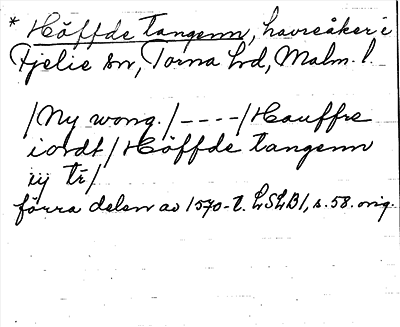 * Höffde tangenn, havreåker i
Fjelie sn, Torna hd, Malm. l.
/Ny wong./----/Hauffre
iordt/Höffde tangenn
iij tr/
förra delen av 1570-t. LSLB1, s. 58. orig.